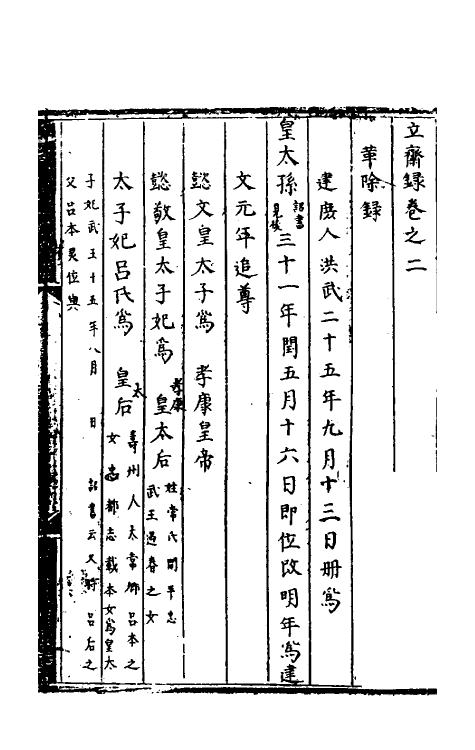 立齋錄卷之二
革除錄
建庶人洪武二十五年九月十三日册爲
皇太孫詔書見後三十一年閏五月十六日即位改明年爲建
文元年追尊
懿文皇太子爲 孝康皇帝
懿敬皇太子妃爲孝康皇太后姓常氏開平忠武王遇春之女
太子妃呂氏爲 皇太后壽州人太常卿呂本之女 都志載本女爲皇太
子妃武王十五年八月 日 詔書云 呂后之
父呂本 位與